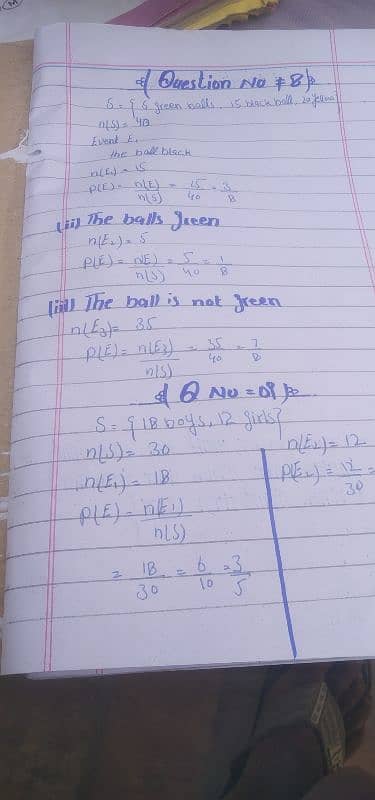 Question No # 8
S = { 5 green balls, 15 black ball, 20
n(S) = 40
Event E,
the ball black
n(E₁) = 15
P(E) = n(E)/n(S) = 15/40 = 3/8
(ii) The balls green
n(E₂) = 5
P(E) = n(E)/n(S) = 5/40 = 1/8
(iii) The ball is not green
n(E₃) = 35
P(E) = n(E₃)/n(S) = 35/40 = 7/8
Q No = 09
S = { 18 boys, 12 girls}
n(S) = 30
n(E₁) = 18
P(E) = n(E₁)/n(S)
= 18/30 = 6/10 = 3/5
n(E₂) = 12
P(E₂) = 12/30 =